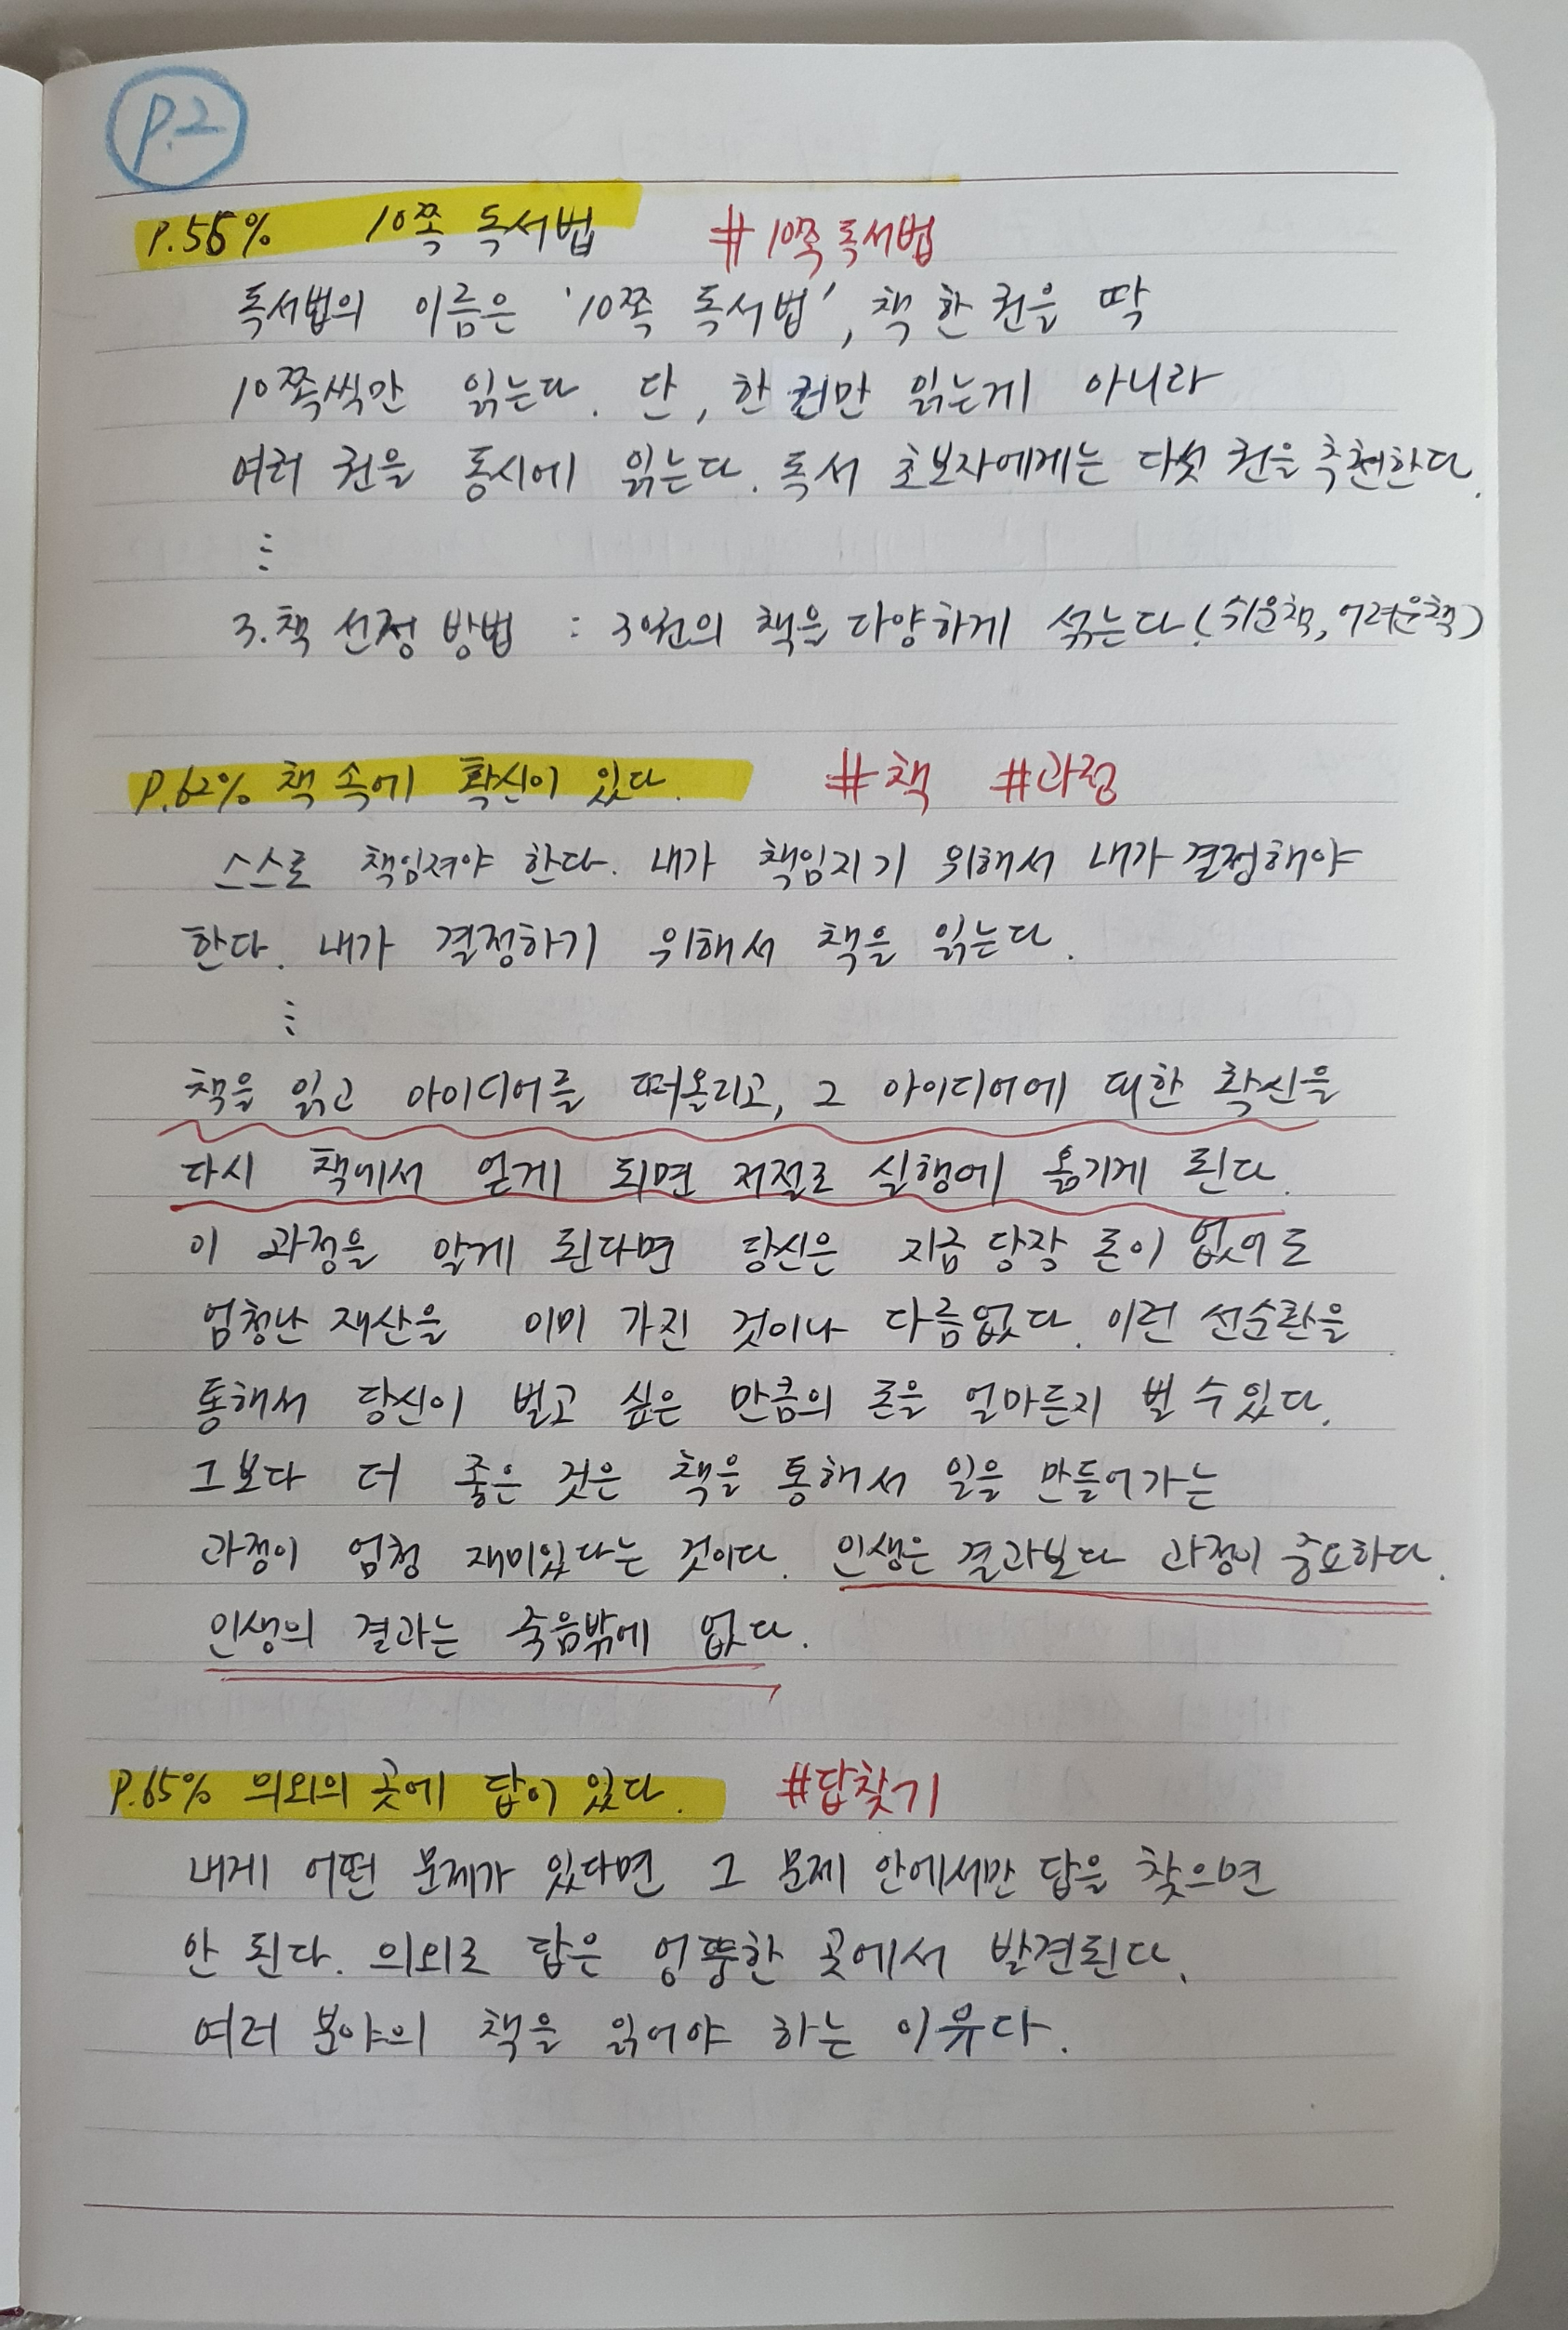 p.2
P.55% 10쪽 독서법 #10쪽독서법
독서법의 이름은 '10쪽 독서법', 책 한 권을 딱
10쪽씩만 읽는다. 단, 한 권만 읽는게 아니라
여러 권을 동시에 읽는다. 독서 초보자에게는 다섯 권을 추천한다.
⋮
3. 책 선정 방법 : 여러권의 책을 다양하게 섞는다(쉬운책, 어려운책)
P.62% 책 속에 확신이 있다. #책 #과정
스스로 책임져야 한다. 내가 책임지기 위해서 내가 결정해야
한다. 내가 결정하기 위해서 책을 읽는다.
⋮
책을 읽고 아이디어를 떠올리고, 그 아이디어에 대한 확신을
다시 책에서 얻게 되면 저절로 실행에 옮기게 된다.
이 과정을 알게 된다면 당신은 지금 당장 돈이 없어도
엄청난 재산을 이미 가진 것이나 다름없다. 이런 선순환을
통해서 당신이 벌고 싶은 만큼의 돈을 얼마든지 벌 수 있다.
그보다 더 좋은 것은 책을 통해서 일을 만들어가는
과정이 엄청 재미있다는 것이다. 인생은 결과보다 과정이 중요하다.
인생의 결과는 죽음밖에 없다.
P.65% 의외의 곳에 답이 있다. #답찾기
내게 어떤 문제가 있다면 그 문제 안에서만 답을 찾으면
안 된다. 의외로 답은 엉뚱한 곳에서 발견된다.
여러 분야의 책을 읽어야 하는 이유다.